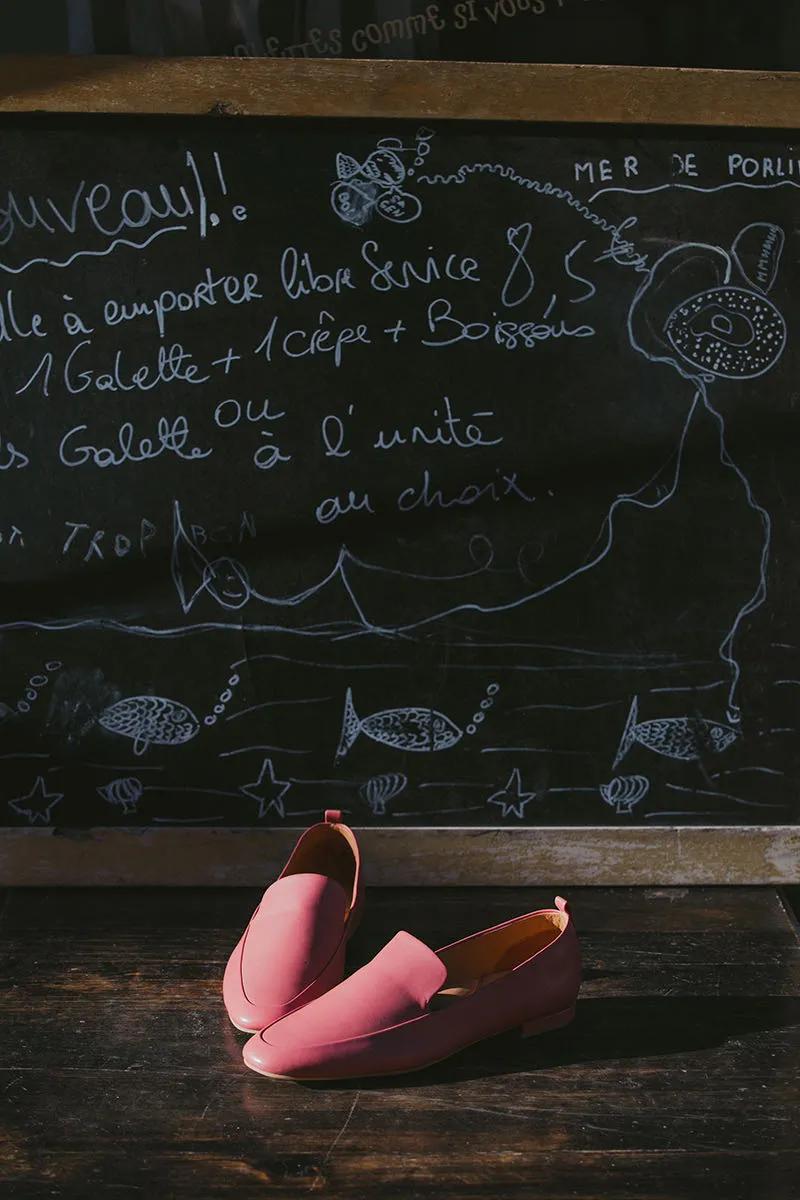 COMME SI VOUS
ouveau)!.
MER DE PORLI
lle à emporter libre Service 8,5
1 Galette + 1 crêpe + Boissons
ou
s Galette à l'unité
au choix.
TROP BON